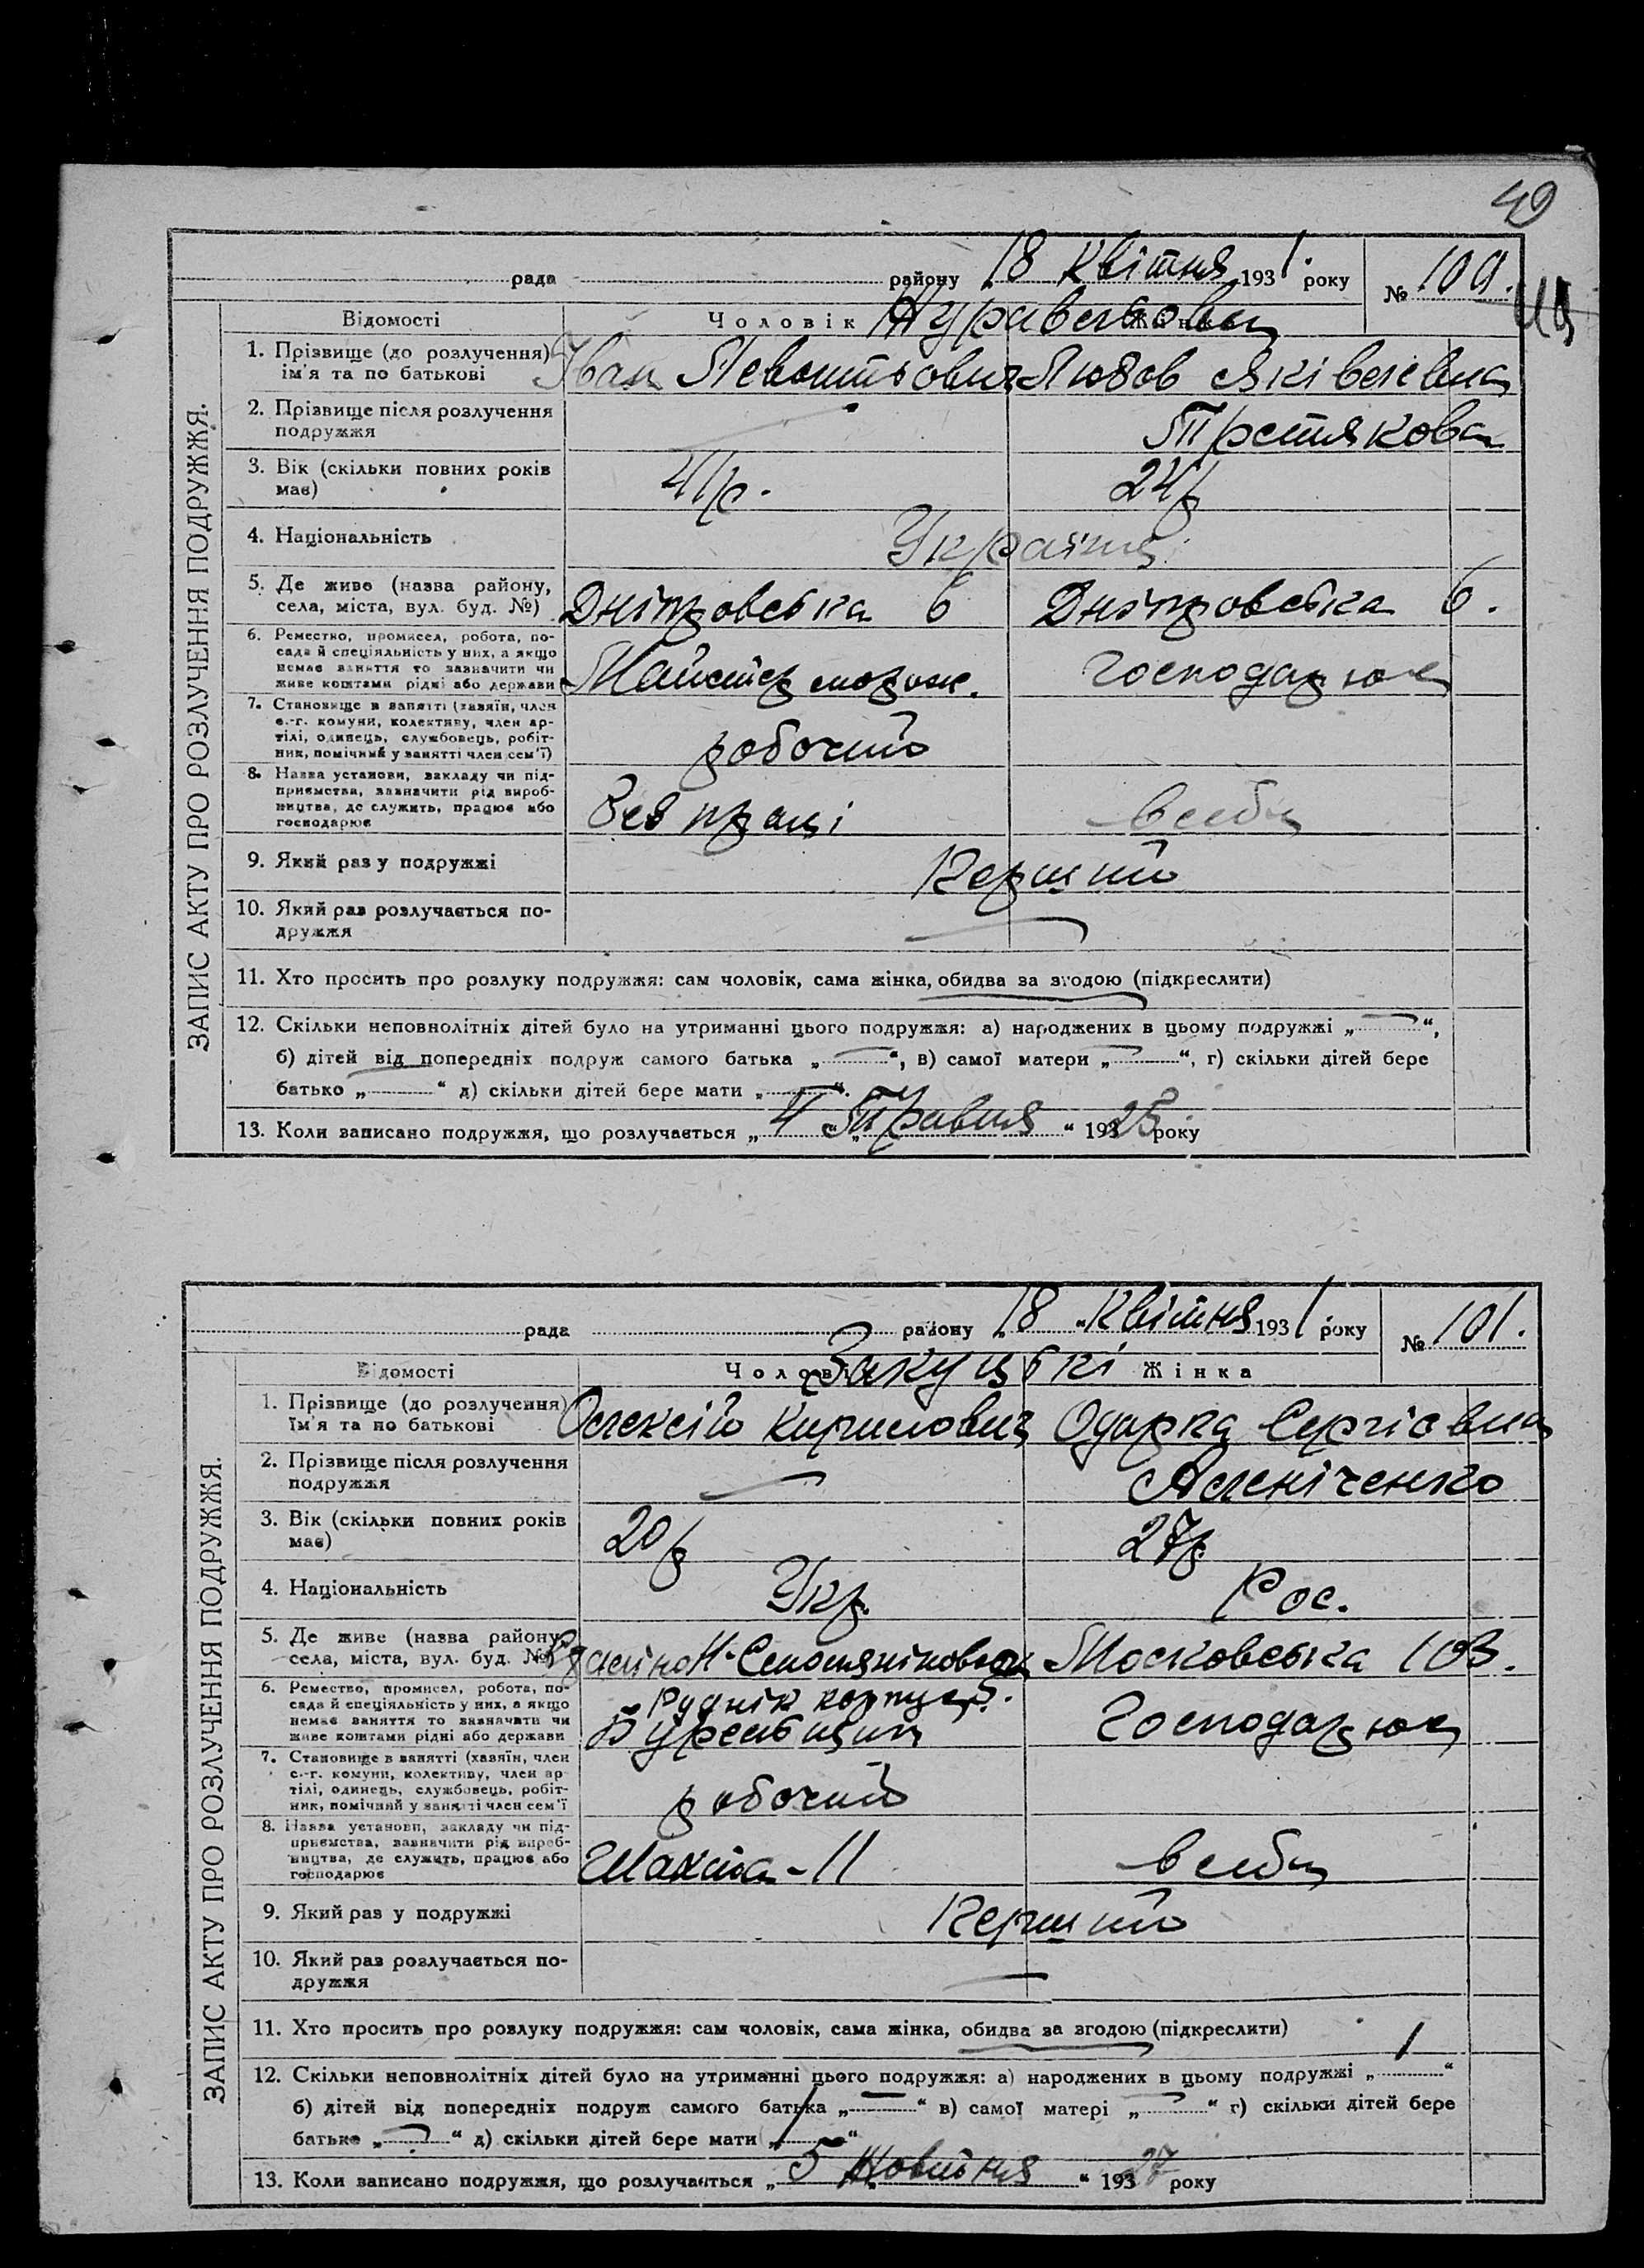 49
рада району 18 Квітня 1931 року № 100.
Відомості Чоловік Жінка
Журавльови
1. Прізвище (до розлучення) ім'я та по батькові Іван Левонтьович Любов Яківелевна
2. Прізвище після розлучення подружжя — Третякова
3. Вік (скільки повних років має) 41 р. 24 р
4. Національність Українці
5. Де живе (назва району, села, міста, вул. буд. №) Дніпровська 6 Дніпровська 6.
6. Ремество, промисел, робота, по-
сада й спеціяльність у них, а якщо
немає заняття то зазначити чи
живе коштами рідні або держави Майстер морож. Господарює
7. Становище в занятті (хазяїн, член
с.-г. комуни, колективу, член ар-
тілі, одинець, службовець, робіт-
ник, помічний у занятті член сем'ї) робочий
8. Назва установи, закладу чи під-
приємства, зазначити рід вироб-
ництва, де служить, працює або
господарює Без праці в себе
9. Який раз у подружжі Перший
10. Який раз розлучається по-
дружжя —
11. Хто просить про розлуку подружжя: сам чоловік, сама жінка, обидва за згодою (підкреслити)
12. Скільки неповнолітніх дітей було на утриманні цього подружжя: а) народжених в цьому подружжі „—“,
б) дітей від попередніх подруж самого батька „—“, в) самої матери „—“, г) скільки дітей бере
батько „—“ д) скільки дітей бере мати „—“.
13. Коли записано подружжя, що розлучається „4“ „Травня“ 1925 року
ЗАПИС АКТУ ПРО РОЗЛУЧЕННЯ ПОДРУЖЖЯ.
рада району 18 „Квітня 1931 року № 101.
Відомості Чоловік Жінка
Закуцькі
1. Прізвище (до розлучення) ім'я та по батькові Олексій Кирилович Одарка Сергієвна
2. Прізвище після розлучення подружжя — Аленіченко
3. Вік (скільки повних років має) 20 р 27 р
4. Національність Укр. Рос.
5. Де живе (назва району, села, міста, вул. буд. №) Рудник корпус Московська 103.
6. Ремество, промисел, робота, по-
сада й спеціяльність у них, а якщо
немає заняття то зазначати чи
живе коштами рідні або держави Бурельщик Господарює
7. Становище в занятті (хазяїн, член
с.-г. комуни, колективу, член ар-
тілі, одинець, службовець, робіт-
ник, помічний у занятті член сем'ї робочий
8. Назва установи, закладу чи під-
приємства, зазначити рід вироб-
ництва, де служить, працює або
господарює Шахта - 11 в себе
9. Який раз у подружжі Перший
10. Який раз розлучається по-
дружжя —
11. Хто просить про розлуку подружжя: сам чоловік, сама жінка, обидва за згодою (підкреслити)
12. Скільки неповнолітніх дітей було на утриманні цього подружжя: а) народжених в цьому подружжі „1“
б) дітей від попередніх подруж самого батька „—“ в) самої матері „—“ г) скільки дітей бере
батько „—“ д) скільки дітей бере мати „1“
13. Коли записано подружжя, що розлучається „5 Жовтня“ 1927 року
ЗАПИС АКТУ ПРО РОЗЛУЧЕННЯ ПОДРУЖЖЯ.